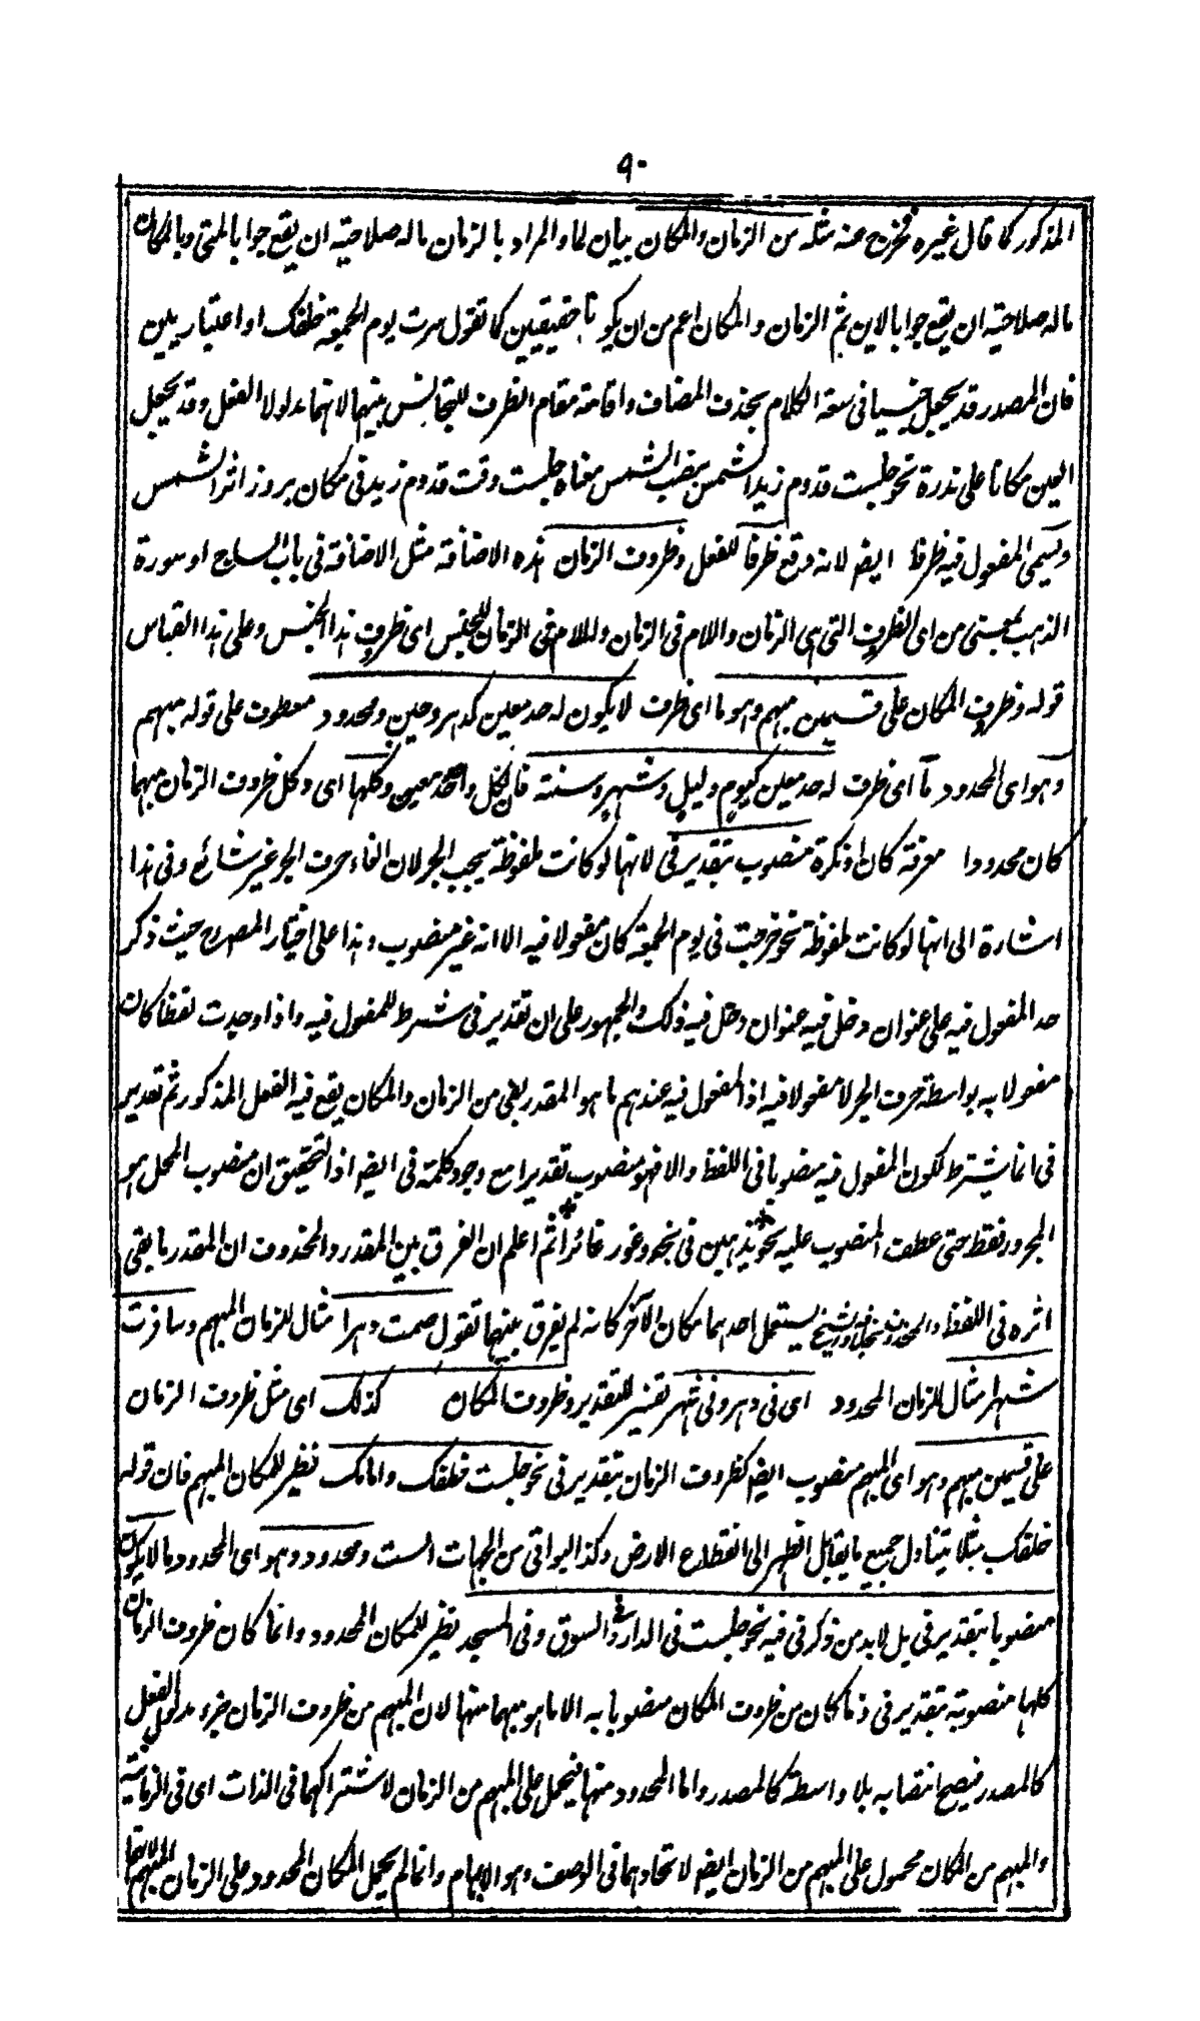 ٩٠
المذكور كما قال غيره فخرج عنه مثله من الزمان والمكان بيان لما والمراد بالزمان ماله صلاحية ان يقع جوابا لمتى وبالمكان
ماله صلاحية ان يقع جوابا لاين ثم الزمان والمكان اعم من ان يكونا حقيقيين كما تقول سرت يوم الجمعة خلفك او اعتباريين
فان المصدر قد يجعل حينيا فى سعة الكلام بحذف المضاف واقامته مقام الظرف للتجانس بينهما لانهما مدلولا الفعل وقد يجعل
العين مكانا على ندرة نحو جلست قدوم زيد الشمس بنصب الشمس معناه جلست وقت قدوم زيد فى مكان بروز اثر الشمس
ويسمى المفعول فيه ظرفا ايضا لانه وقع ظرفا للفعل وظروف الزمان هذه الاضافة مثل الاضافة فى باب الساج او سورة
الذهب بمعنى من اى الظروف التى هى الزمان واللام فى الزمان واللام فى الزمان للجنس اى ظروف هذا الجنس وعلى هذا القياس
قوله وظروف المكان على قسمين مبهم وهو ما اى ظرف لا يكون له حد معين كدهر وحين ومحدود معطوف على قوله مبهم
وهو اى المحدود ما اى ظرف له حد معين كيوم وليل وشهر وسنة فان لكل واحد حد معين وكلها اى وكل ظروف الزمان مبهما
كان محدودا معرفة كان او نكرة منصوب بتقدير فى لانها لو كانت ملفوظة يجب الجر لان الغاء حرف الجر غير شائع وفى هذا
اشارة الى انها لو كانت ملفوظة نحو خرجت فى يوم الجمعة كان مفعولا فيه الا انه غير منصوب وهذا على اختيار المصرح حيث ذكر
حد المفعول فيه على عنوان دخل فيه عنوان دخل فيه ذلك والجمهور على ان تقدير فى شرط للمفعول فيه واذا وجدت لفظا كان
مفعولا به بواسطة حرف الجر لا مفعولا فيه اذ المفعول فيه عندهم ما هو المقدر بفى من الزمان والمكان يقع فيه الفعل المذكور ثم تقدير
فى انما يشترط لكون المفعول فيه منصوبا فى اللفظ والا فهو منصوب تقديرا مع وجود كلمة فى ايضا اذ التحقيق ان منصوب المحل هو
المجرور فقط حتى عطف المنصوب عليه نحو يذهبن فى نجد وغورا غائرا ثم اعلم ان الفرق بين المقدر والمحذوف ان المقدر ما بقى
اثره فى اللفظ والمحذوف بخلافه والشيخ يستعمل احدهما مكان الآخر كانه لم يفرق بينهما تقول صمت دهرا مثال للزمان المبهم وسافرت
شهرا مثال للزمان المحدود اى فى دهر وفى شهر تفسير للتقدير وظروف المكان كذلك اى مثل ظروف الزمان
على قسمين مبهم وهو اى المبهم منصوب ايضا كظروف الزمان بتقدير فى نحو جلست خلفك وامامك نظير للمكان المبهم فان قوله
خلفك مثلا يتناول جميع ما يقابل الظهر الى انقطاع الارض وكذا البواقى من الجهات الست ومحدود وهو اى المحدود ما لا يكون
منصوبا بتقدير فى بل لا بد من ذكر فى فيه نحو جلست فى الدار وفى السوق وفى المسجد نظير للمكان المحدود وانما كان ظروف الزمان
كلها منصوبة بتقدير فى وما كان من ظروف المكان منصوبا به الا ما هو مبهما منها لان المبهم من ظروف الزمان جزء مدلول الفعل
كالمصدر فيصح انتصابه بلا واسطة كالمصدر واما المحدود منها فيحمل على المبهم من الزمان لاشتراكهما فى الذات اى فى الزمانية
والمبهم من المكان محمول على المبهم من الزمان ايضا لاتحادهما فى الوصف وهو الابهام وانما لم يحمل المكان المحدود على الزمان المبهم